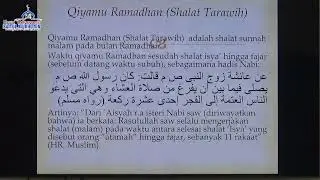 Qiyamu Ramadhan (Shalat Tarawih)
Qiyamu Ramadhan (Shalat Tarawih) adalah shalat sunnah
malam pada bulan Ramadhan
Waktu qiyamu Ramadhan sesudah shalat isya' hingga fajar
(sebelum datang waktu subuh), sebagaimana hadis Nabi:
عن عائشة زوج النبى ص م قالت: كان رسول الله ص م
يصلى فيما بين أن يفرغ من صلاة العشاء وهى التى يدعو
الناس العتمة إلى الفجر إحدى عشرة ركعة (رواه مسلم)
Artinya: "Dari 'Aisyah r.a isteri Nabi saw (diriwayatkan
bahwa) ia berkata: Rasulullah saw selalu mengerjakan
shalat (malam) pada waktu antara selesai shalat 'Isya' yang
disebut orang "atimah" hingga fajar, sebanyak 11 rakaat"
(HR. Muslim)